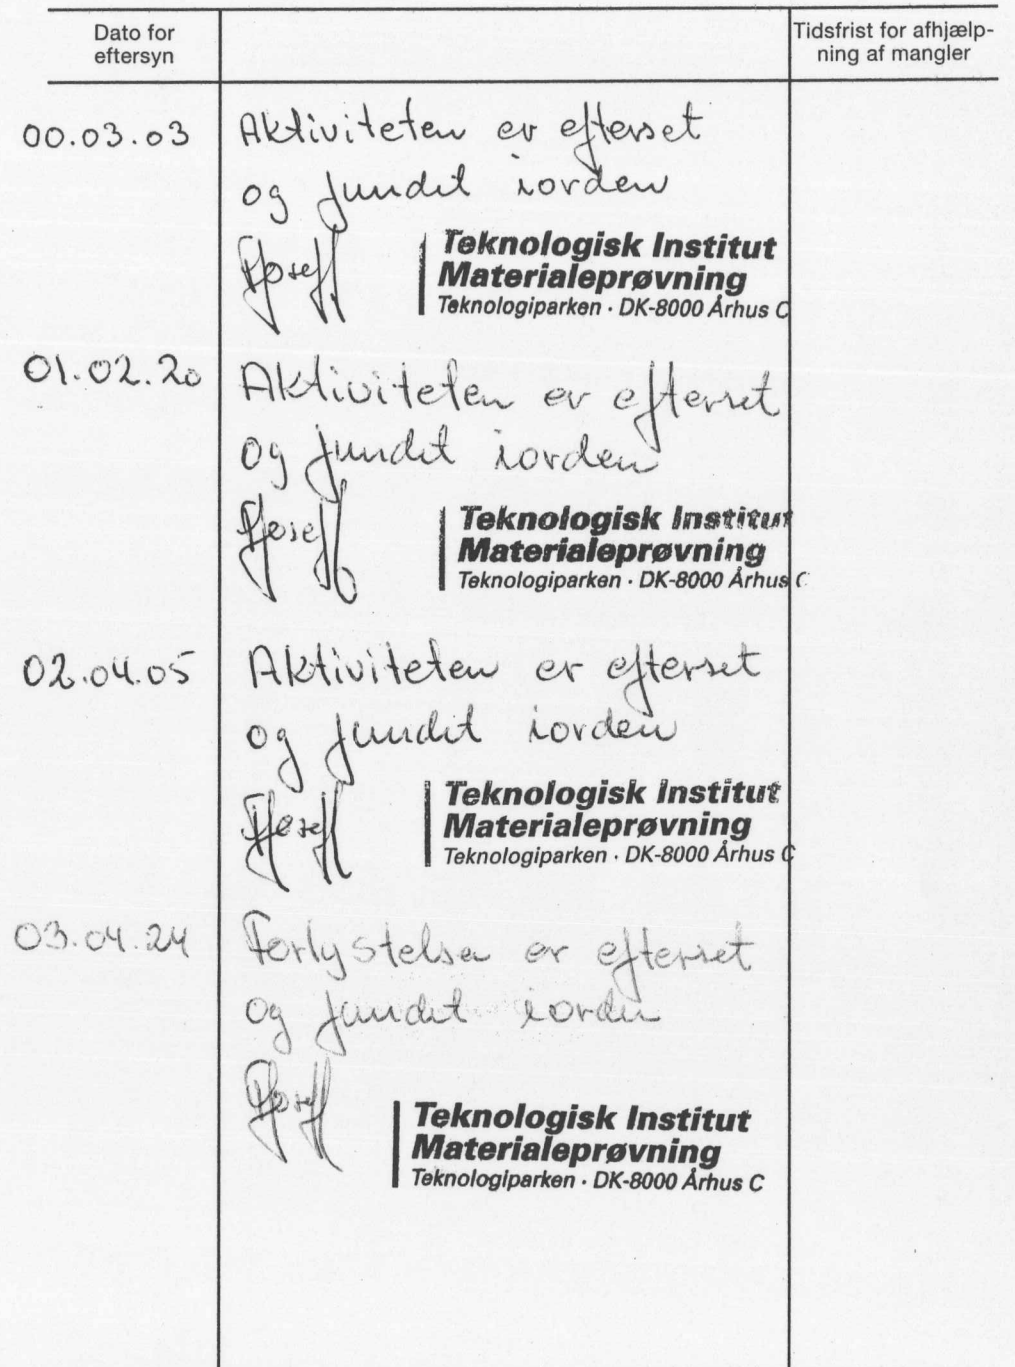 Dato for
eftersyn
Tidsfrist for afhjælp-
ning af mangler
00.03.03
Aktiviteten er efterset
og fundet iorden
Teknologisk Institut
Materialeprøvning
Teknologiparken · DK-8000 Århus C
01.02.20
Aktiviteten er efterset
og fundet iorden
Teknologisk Institut
Materialeprøvning
Teknologiparken · DK-8000 Århus C
02.04.05
Aktiviteten er efterset
og fundet iorden
Teknologisk Institut
Materialeprøvning
Teknologiparken · DK-8000 Århus C
03.04.24
Forlystelse er efterset
og fundet iorden
Teknologisk Institut
Materialeprøvning
Teknologiparken · DK-8000 Århus C